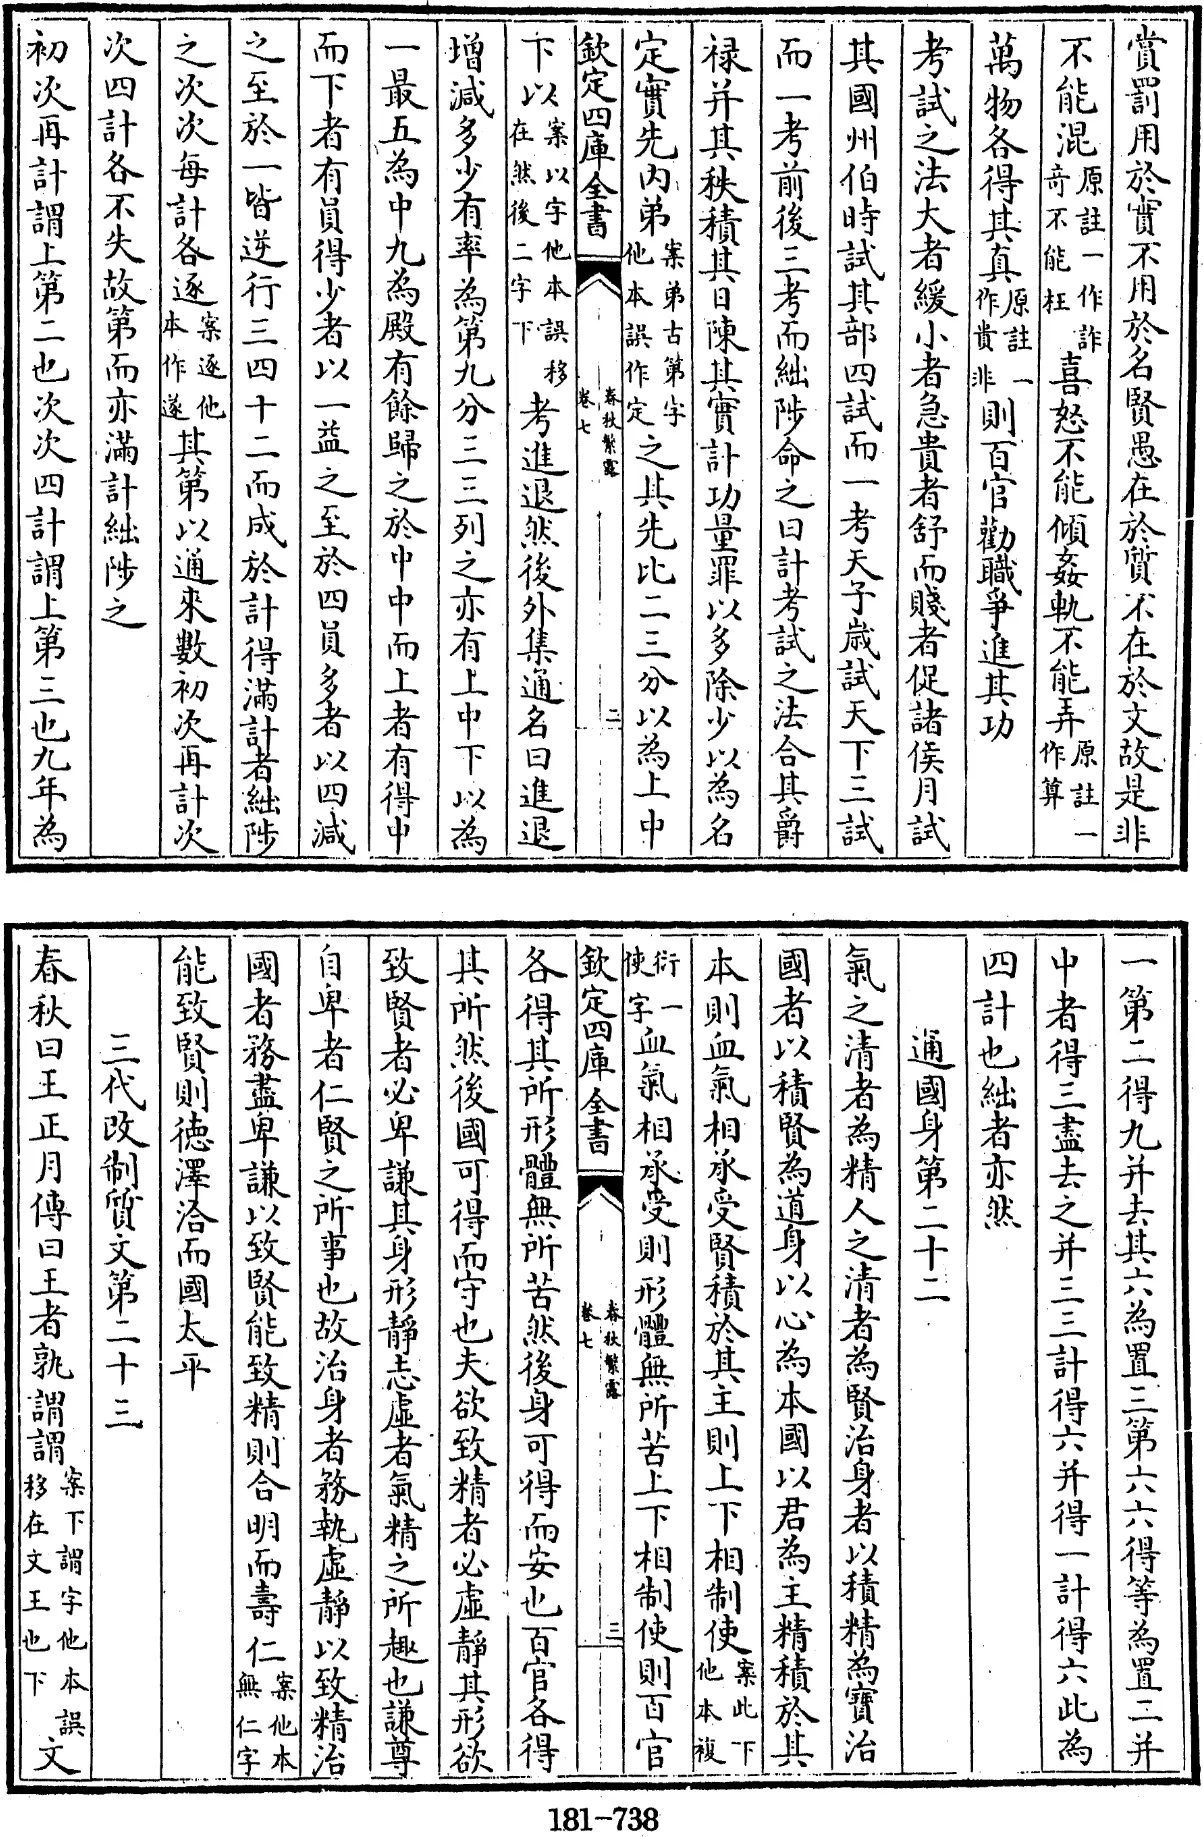 賞罰用於實不用於名賢愚在於質不在於文故是非
不能混原註一作詐竒不能枉喜怒不能傾姦軌不能弄原註一作算
萬物各得其真原註一作貴非則百官勸職爭進其功
考試之法大者緩小者急貴者舒而賤者促諸侯月試
其國州伯時試其部四試而一考天子嵗試天下三試
而一考前後三考而絀陟命之曰計考試之法合其爵
禄并其秩積其日陳其實計功量罪以多除少以為名
定實先内弟案弟古第字他本誤作定之其先比二三分以為上中
欽定四庫全書
春秋繁露
卷七
二
下以案以字他本誤移在然後二字下考進退然後外集通名曰進退
增減多少有率為第九分三三列之亦有上中下以為
一最五為中九為殿有餘歸之於中中而上者有得中
而下者有員得少者以一益之至於四員多者以四減
之至於一皆逆行三四十二而成於計得滿計者絀陟
之次次每計各逐案逐他本作遂其第以通來數初次再計次
次四計各不失故第而亦滿計絀陟之
初次再計謂上第二也次次四計謂上第三也九年為
一第二得九并去其六為置三第六六得等為置二并
中者得三盡去之并三三計得六并得一計得六此為
四計也絀者亦然
通國身第二十二
氣之清者為精人之清者為賢治身者以積精為寶治
國者以積賢為道身以心為本國以君為主精積於其
本則血氣相承受賢積於其主則上下相制使案此下他本複
衍一使字血氣相承受則形體無所苦上下相制使則百官
欽定四庫全書
春秋繁露
卷七
三
各得其所形體無所苦然後身可得而安也百官各得
其所然後國可得而守也夫欲致精者必虛靜其形欲
致賢者必卑謙其身形靜志虛者氣精之所趣也謙尊
自卑者仁賢之所事也故治身者務執虛靜以致精治
國者務盡卑謙以致賢能致精則合明而壽仁案他本無仁字
能致賢則德澤洽而國太平
三代改制質文第二十三
春秋曰王正月傳曰王者孰謂謂案下謂字他本誤移在文王也下文
181-738